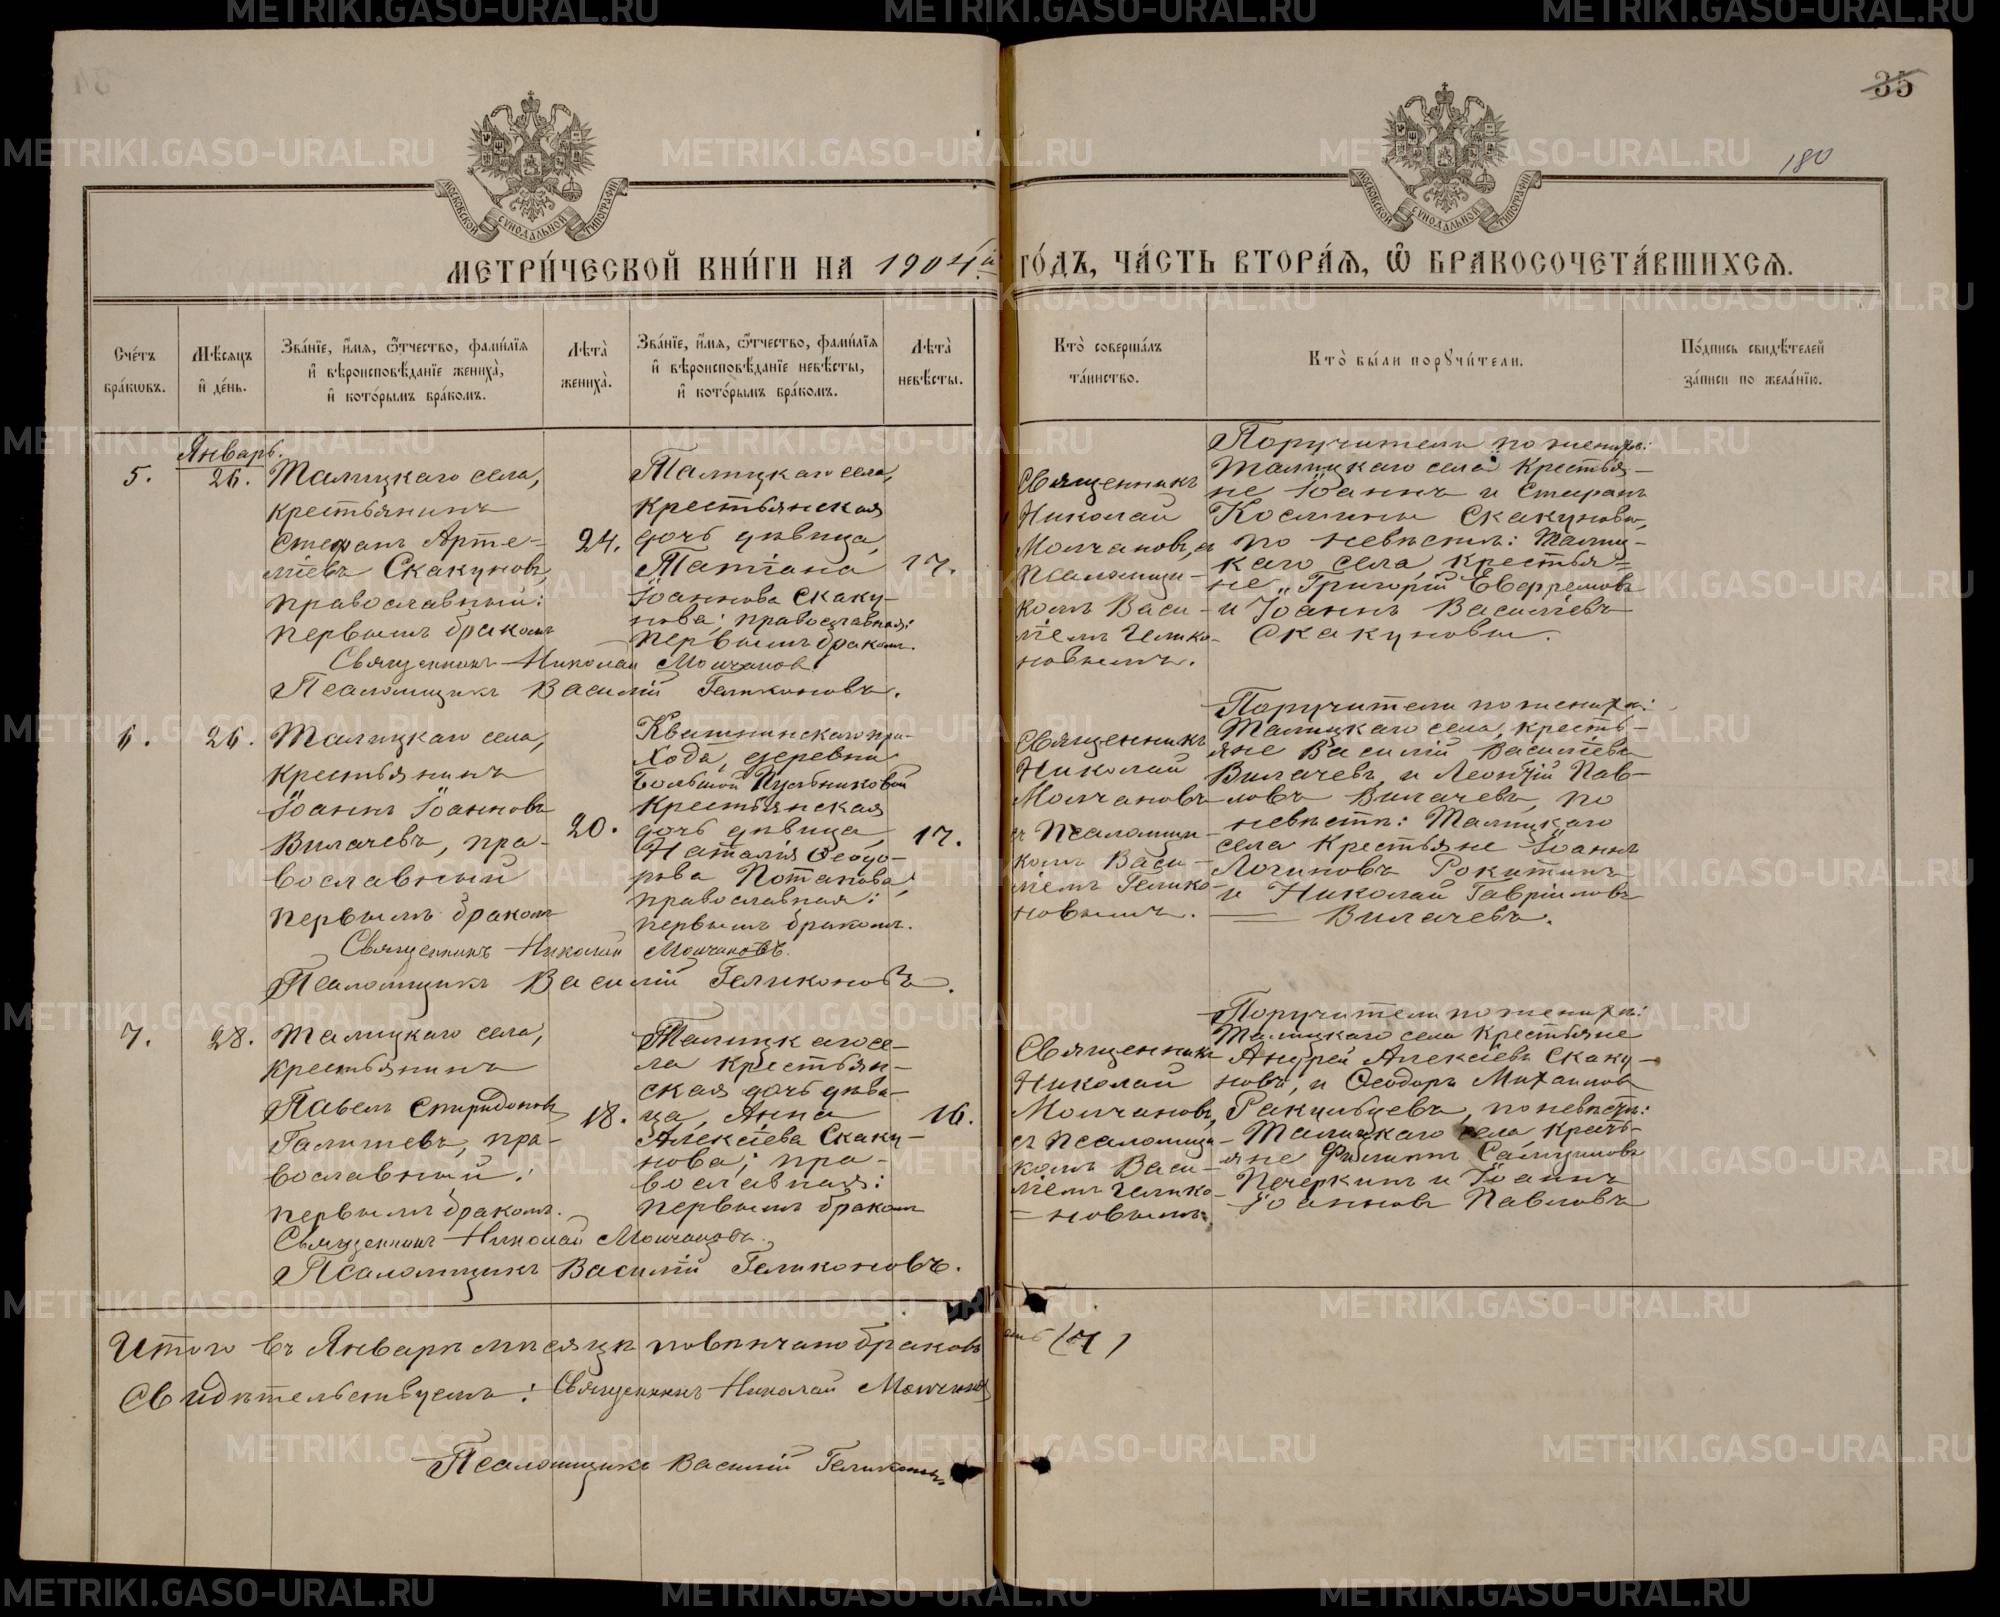 35
180
МОСКОВСКОЙ СУНОДАЛЬНОЙ ТИПОГРАФІИ
МОСКОВСКОЙ СУНОДАЛЬНОЙ ТИПОГРАФІИ
МЕТРИ́ЧЕСКОЙ КНИ́ГИ НА 1904й ГО́ДЪ, ЧА́СТЬ ВТОРА́Я, Ѽ БРАКОСОЧЕТА́ВШИХСЯ.
Сче́тъ бра́кѡвъ.
Мѣ́сяцъ и҆ де́нь.
Зва́нїе, и҆́мя, ѻ҆́тчество, фами́лїя и҆ вѣроисповѣ́данїе жениха̀, и҆ кото́рымъ бра́комъ.
Лѣ́та̀ жениха̀.
Зва́нїе, и҆́мя, ѻ҆́тчество, фами́лїя и҆ вѣроисповѣ́данїе невѣ́сты, и҆ кото́рымъ бра́комъ.
Лѣ́та̀ невѣ́сты.
Кто̀ соверша́лъ та́инство.
Кто̀ бы́ли порꙋчи́тели.
По́дпись свидѣ́телей за́писи по жела́нїю.
Январь.
5.
26.
Талицкаго села,
крестьянинъ
Стефанъ Арте-
міевъ Скакуновъ,
православный:
первымъ бракомъ
24.
Талицкаго села,
крестьянская
дочь дѣвица,
Татіана
Іоаннова Скаку-
нова; православная:
первымъ бракомъ.
17.
Священникъ
Николай
Молчановъ, съ
псаломщи-
комъ Васи-
ліемъ Гелико-
новымъ.
Поручители по женихѣ:
Талицкаго села крестья-
не Іоаннъ и Стефанъ
Космины Скакуновы,
по невѣстѣ: Талиц-
каго села крестья-
не Григорій Евфремовъ
и Іоаннъ Василіевъ
Скакуновы.
Священникъ Николай Молчановъ
Псаломщикъ Василій Геликоновъ.
6.
26.
Талицкаго села,
крестьянинъ
Іоаннъ Іоанновъ
Вилачевъ, пра-
вославный
первымъ бракомъ
20.
Квашнинскаго при-
хода, деревни
Большой Пульниковой
крестьянская
дочь дѣвица
Наталія Ѳеодо-
рова Потапова;
православная:
первымъ бракомъ.
17.
Священникъ
Николай
Молчановъ
съ псаломщи-
комъ Васи-
ліемъ Гелико-
новымъ.
Поручители по женихѣ:
Талицкаго села, кресть-
яне Василій Василіевъ
Вилачевъ, и Леонтій Пав-
ловъ Вилачевъ, по
невѣстѣ: Талицкаго
села крестьяне Іоаннъ
Логиновъ Рокитинъ
и Николай Гавріиловъ
Вилачевъ.
Священникъ Николай Молчановъ.
Псаломщикъ Василій Геликоновъ.
7.
28.
Талицкаго села,
крестьянинъ
Павелъ Спиридоновъ
Галишевъ, пра-
вославный:
первымъ бракомъ.
18.
Талицкаго се-
ла крестьян-
ская дочь дѣви-
ца, Анна
Алексіева Скаку-
нова; пра-
вославная:
первымъ бракомъ
16.
Священникъ
Николай
Молчановъ,
съ псаломщи-
комъ Васи-
ліемъ Гелико-
новымъ.
Поручители по женихѣ:
Талицкаго села крестьяне
Андрей Алексіевъ Скаку-
новъ, и Ѳеодоръ Михаиловъ
Ракульцевъ, по невѣстѣ:
Талицкаго села, кресть-
яне Филиппъ Сампсоновъ
Печеркинъ и Іоаннъ
Іоанновъ Павловъ
Священникъ Николай Молчановъ.
Псаломщикъ Василій Геликоновъ.
Итого въ Январѣ мѣсяцѣ повѣнчано браковъ семь (7)
Свидѣтельствуемъ: Священникъ Николай Молчановъ
Псаломщикъ Василій Геликоновъ
METRIKI.GASO-URAL.RU